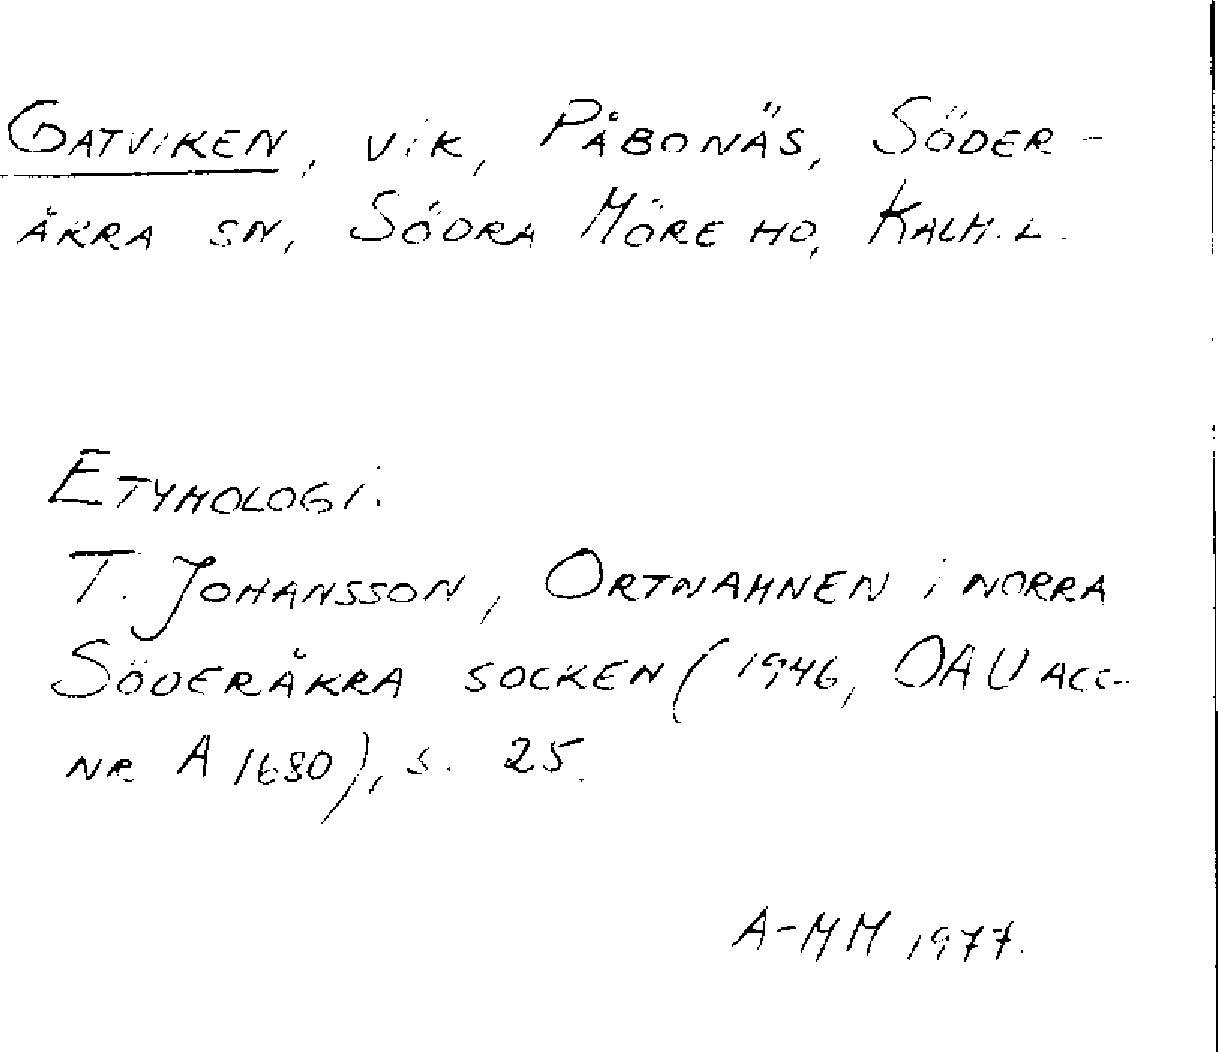 GATVIKEN, VIK, PÅBONÄS, SÖDER-
ÅKRA SN, SÖDRA MÖRE HD, KALM. L.
ETYMOLOGI.
T. JOHANSSON, ORTNAMNEN I NORRA
SÖDERÅKRA SOCKEN (1946, OAU ACC-
NR A 1680), S. 25.
A-MM 1977.